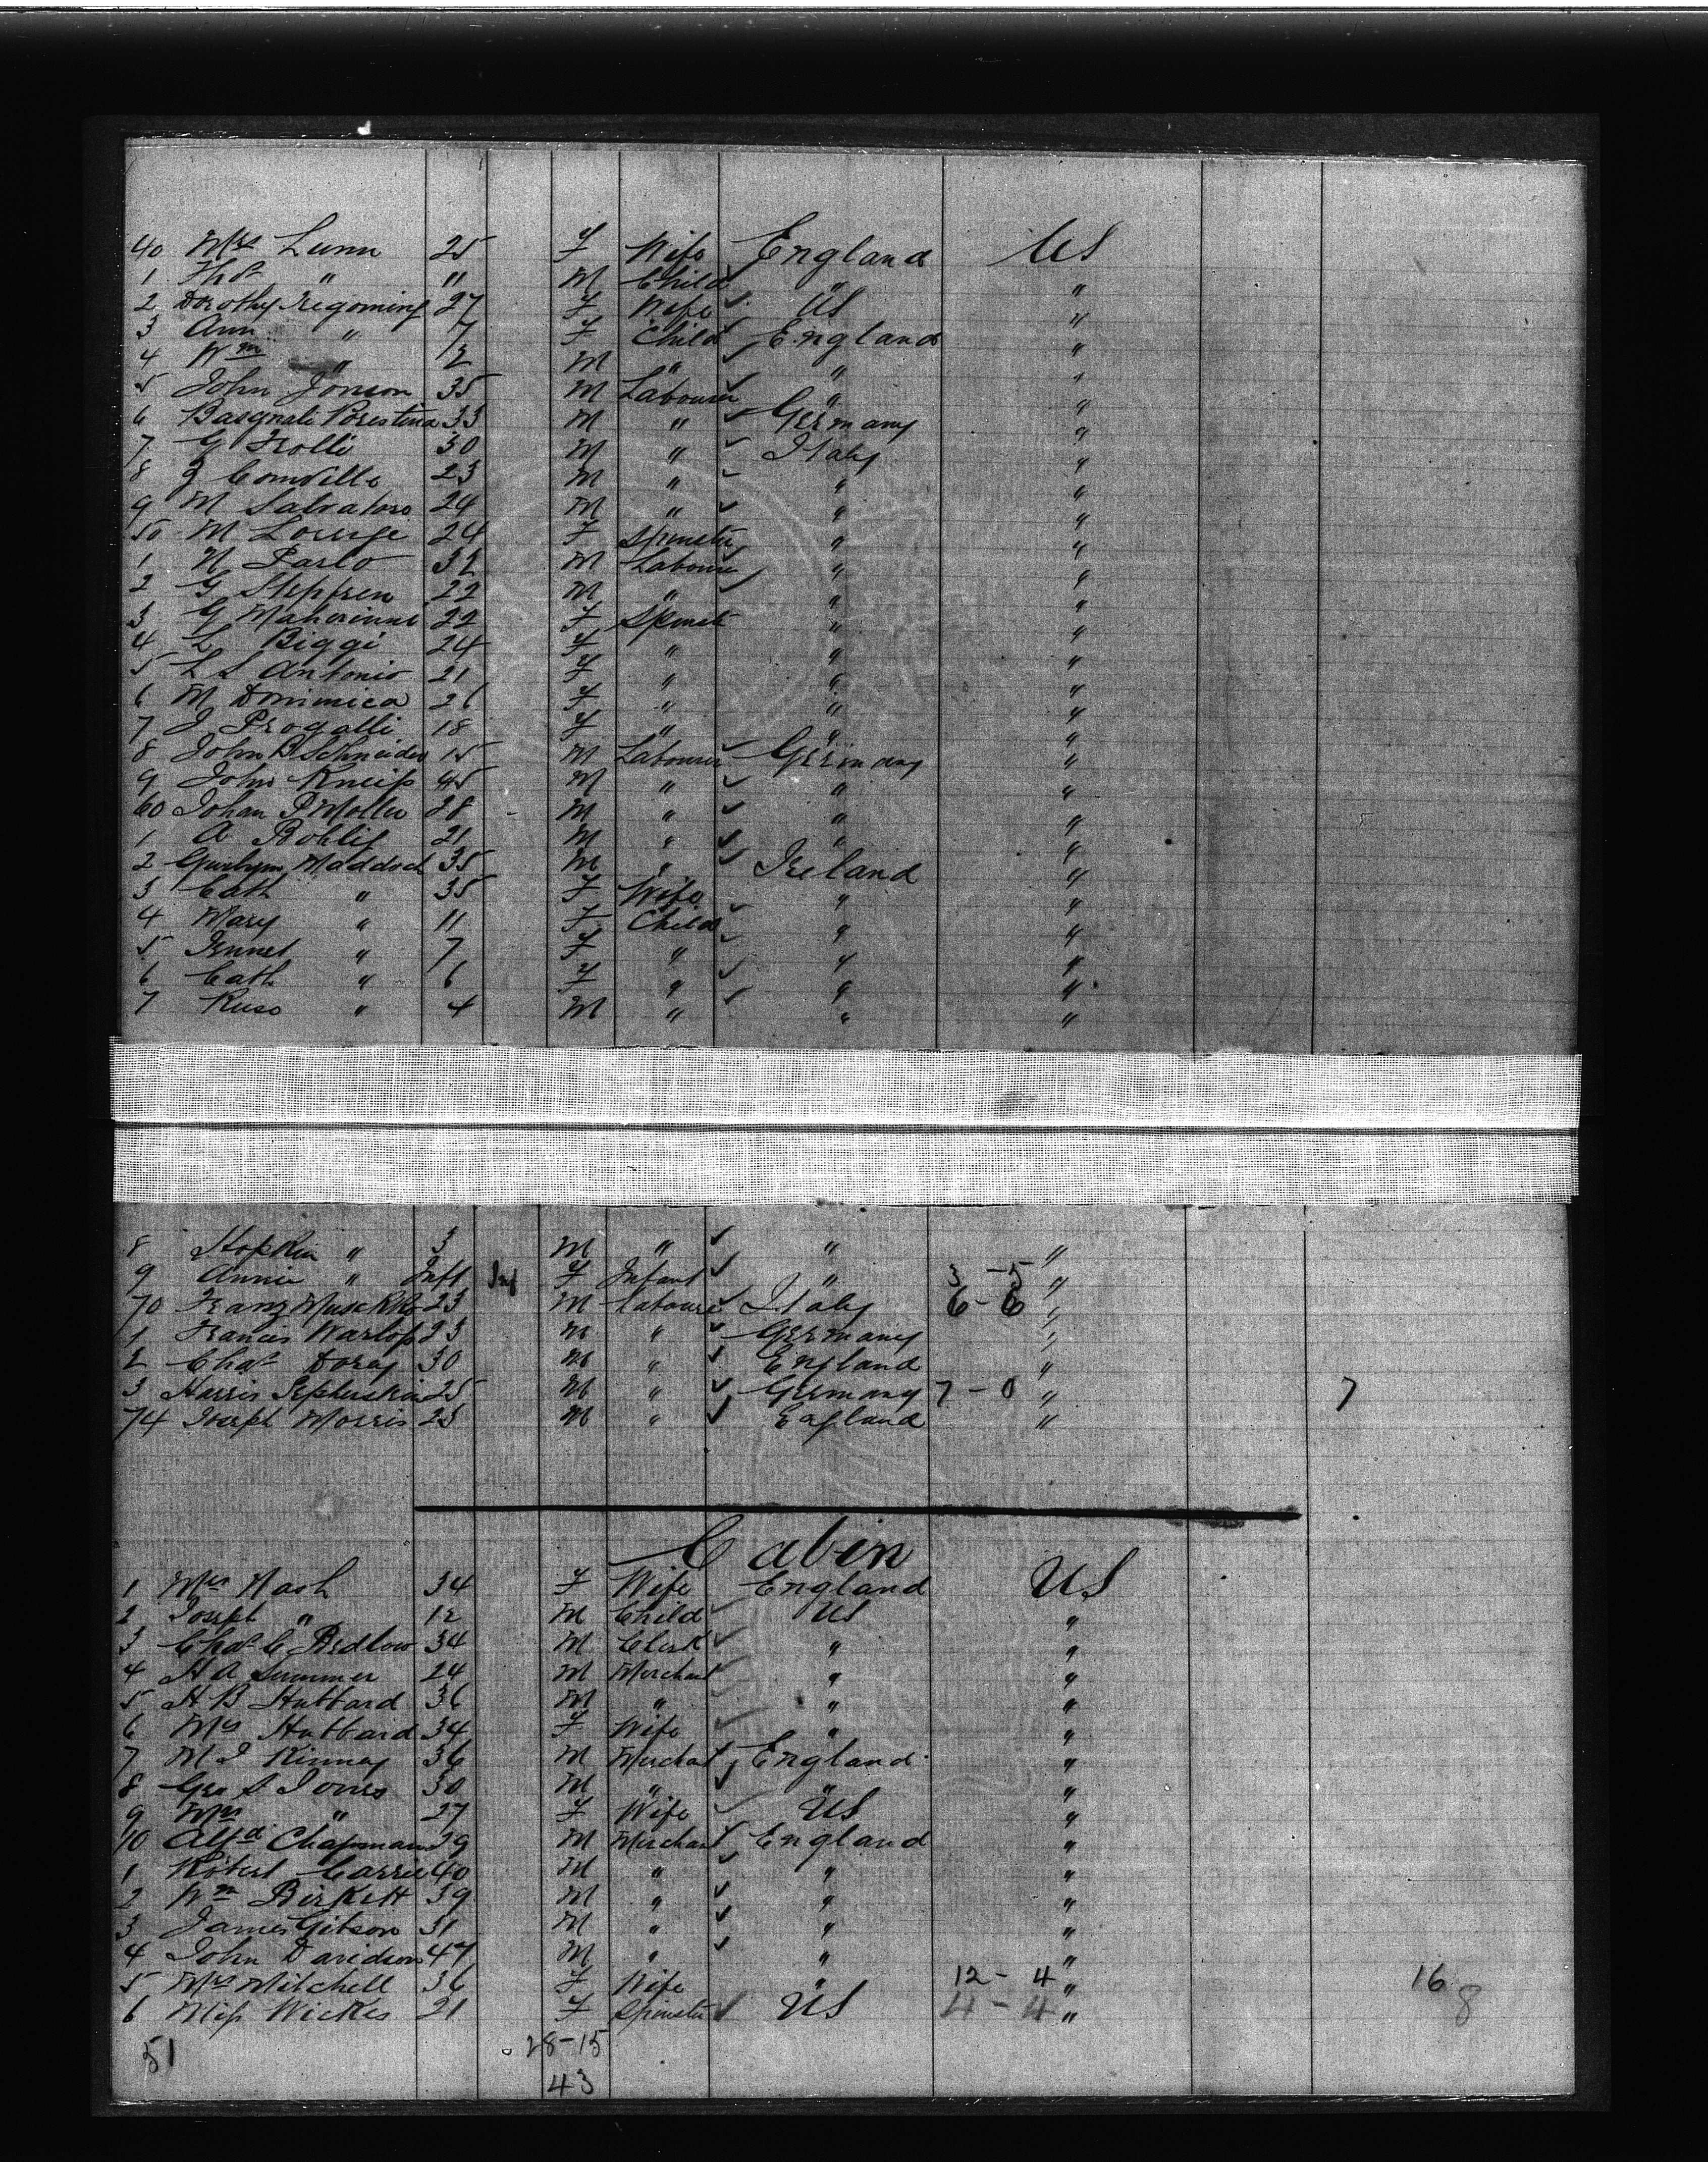 40 Mrs Lunn 25 F Wife England US
1 Thos " " M Child " "
2 Dorothy Tregoming 27 F Wife US "
3 Ann " 7 F Child England "
4 Wm " 2 M " " "
5 John Jonson 35 M Labourer " "
6 Basgnali Porestina 33 M " Germany "
7 G Trolli 30 M " Italy "
8 Comville 23 M " " "
9 M Salvatore 24 M " " "
50 M 24 F Spinster " "
1 N Parlo 32 M Labourer " "
2 G Steppen 22 M " " "
3 G 22 F Spinst " "
4 L Biggi 24 F " " "
5 L L Antonio 21 F " " "
6 M Dominica 26 F " " "
7 J Progalli 18 F " " "
8 John B Schneider 15 M Labourer Germany "
9 John Kneip 45 M " " "
60 Johan P Moller 28 M " " "
1 A Bohlif 21 M " " "
2 Maddock 35 M " Ireland "
3 Cath " 35 F Wife " "
4 Mary " 11 F Child " "
5 Jennet " 7 F " " "
6 Cath " 6 F " " "
7 " 4 M " " "
8 Hopkin " 3 M " " "
9 Annie " Inft Inf F Infant " 3-5 "
70 Franz 23 M Labourer Italy 6-6 "
1 Francis Warlop 23 M " Germany "
2 Chas Doray 30 M " England "
3 Harris 25 M " Germany 7-0 " 7
74 Joseph Morris 25 M " England "
Cabin
1 Mrs Nash 34 F Wife England US
2 Joseph " 12 M Child US "
3 Chas C Bedlow 34 M Clerk " "
4 H A Summer 24 M Merchant " "
5 H B Hubbard 36 M " " "
6 Mrs Hubbard 34 F Wife " "
7 M J Kinney 36 M Merchant England "
8 Geo S Jones 30 M " " "
9 Mrs " 27 F Wife US "
10 Alfd Chapman 29 M Merchant England "
1 Robert Carrie 40 M " " "
2 Wm Birkett 39 M " " "
3 James Gibson 31 M " " "
4 John Davidson 47 M " " "
5 Mrs Mitchell 36 F Wife " 12-4 " 16
6 Miss Wickes 21 F Spinster US 4-4 " 8
51 28-15
43